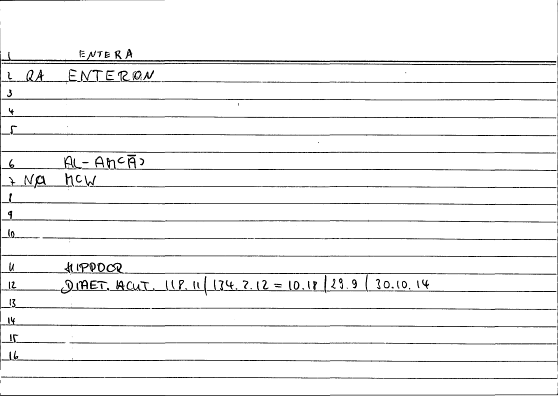 1 ENTERA
2 QA ENTERON
3
4
5
6 AL-AMCĀ>
7 NA MCW
8
9
10
11 HIPPOCR
12 DIAET. ACUT. 118.11 | 134.2.12 = 10.18 | 29.9 | 30.10.14
13
14
15
16